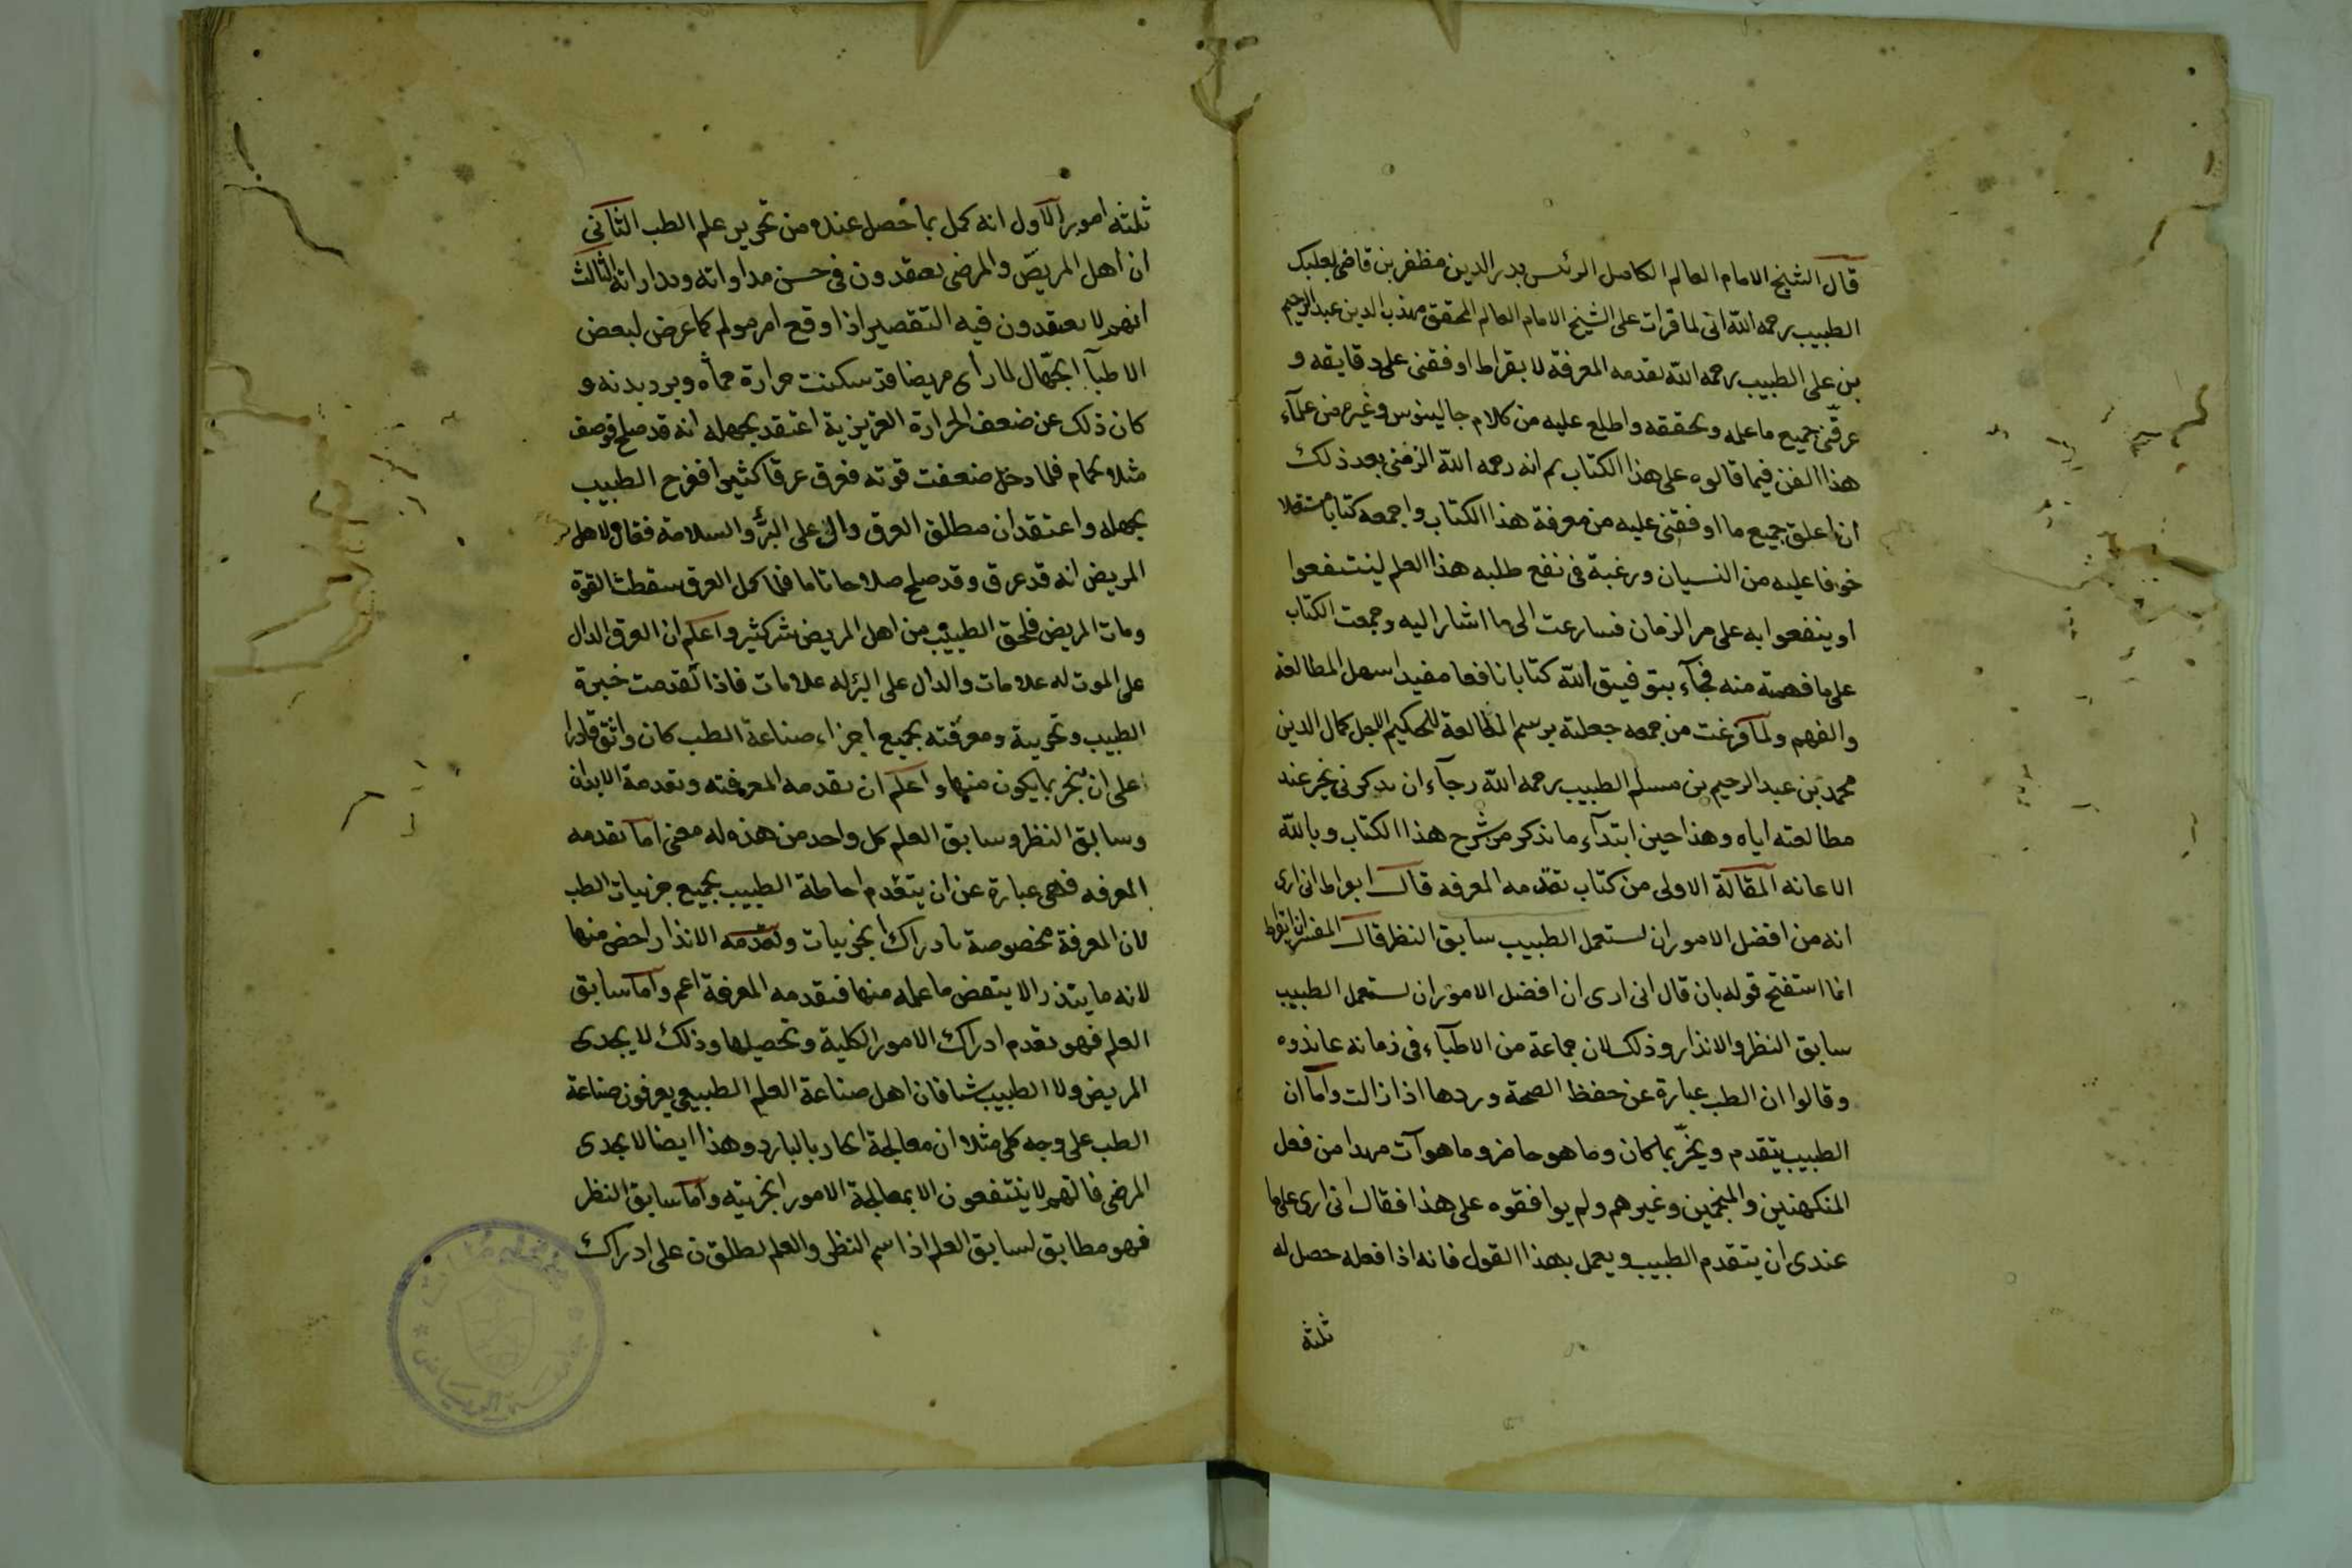 قال الشيخ الامام العالم الكامل الرئس بدر الدين مظفر بن قاضى بعلبك
الطبيب رحمه الله انى لما قرات على الشيخ الامام العالم المحقق مهذب الدين عبد الرحيم
بن على الطبيب رحمه الله تقدمه المعرفة لابقراط اوفقنى على دقايقه و
عرفنى جميع ما علمه وتحققه واطلع عليه من كلام جالينوس وغيره من علمآء
هذا الفن فيما قالوه على هذا الكتاب ثم انه رحمه الله الزمنى بعد ذلك
ان اعلق جميع ما اوفقنى عليه من معرفة هذا الكتاب واجمعه كتابا مستقلا
خوفا عليه من النسيان ورغبة فى نفع طلبه هذا العلم لينتفعوا
او ينفعوا به على مر الزمان فسارعت الى ما اشار اليه وجمعت الكتاب
على ما فهمته منه فجآء بتوفيق الله كتابا نافعا مفيدا سهل المطالعة
والفهم ولما فرغت من جمعه جعلته برسم المطالعة للحكيم الاجل كمال الدين
محمد بن عبد الرحيم بن مسلم الطبيب رحمه الله رجآء ان يذكرنى بخير عند
مطالعته اياه وهذا حين ابتدآء ما نذكر من شرح هذا الكتاب وبالله
الاعانه المقالة الاولى من كتاب تقدمه المعرفه قال ابقراط انى ارى
انه من افضل الامور ان يستعمل الطبيب سابق النظر قال المفسر ان ابقراط
انما استفتح قوله بان قال انى ارى ان افضل الامور ان يستعمل الطبيب
سابق النظر والانذار وذلك لان جماعة من الاطبآء فى زمانه عاندوه
وقالوا ان الطب عبارة عن حفظ الصحة وردها اذا زالت واما ان
الطبيب يتقدم ويخبر بما كان وما هو حاضر وما هو آت فهذا من فعل
المتكهنين والمنجمين وغيرهم ولم يوافقوه على هذا فقال انى ارى على ما
عندى ان يتقدم الطبيب ويعمل بهذا القول فانه اذا فعله حصل له
ثلثه
ثلثه امور الاول انه كمل بما حصل عنده من تحرير علم الطب الثانى
ان اهل المريض والمرضى يعتقدون فى حسن مداواته ومداراته الثالث
انهم لا يعتقدون فيه التقصير اذا وقع امر مولم كما عرض لبعض
الاطبآ الجهال لما رأى مريضا قد سكنت حرارة حماه وبرد بدنه و
كان ذلك عن ضعف الحرارة الغريزية اعتقد بجهله انه قد صلح فوصف
مثلا حمام فلما دخل ضعفت قوته فعرق عرقا كثيرا ففرح الطبيب
بجهله واعتقد ان مطلق العرق دال على البرؤ والسلامة فقال لاهل
المريض انه قد عرق وقد صلح صلاحا تاما فلما كمل العرق سقطت القوة
ومات المريض فلحق الطبيب من اهل المريض شر كثير واعلم ان العرق الدال
على الموت له علامات والدال على البرء له علامات فاذا تقدمت خبرة
الطبيب وتجربة ومعرفته بجميع اجزاء صناعة الطب كان واثق قادرا
على ان يخبر بما يكون منها واعلم ان تقدمه المعرفته وتقدمة الانذار
وسابق النظر وسابق العلم كل واحد من هذه له معنى اما تقدمه
المعرفه فهى عبارة عن ان يتقدم احاطة الطبيب بجميع جزئيات الطب
لان المعرفة مخصوصة بادراك الجزئيات وتقدمه الانذار اخص منها
لانه ما ينذر الا ببعض ما علمه منها فتقدمه المعرفة اعم واما سابق
العلم فهو تقدم ادراك الامور الكلية وتحصيلها وذلك لا يجدى
المريض ولا الطبيب شيئا فان اهل صناعة العلم الطبيعى يعرفون صناعة
الطب على وجه كلى مثلا ان معالجة الحار بالبارد وهذا ايضا لا يجدى
المرضى فانهم لا ينتفعون الا بمعالجة الامور الجزئيه واما سابق النظر
فهو مطابق لسابق العلم اذا اسم النظر والعلم يطلق ن على ادراك